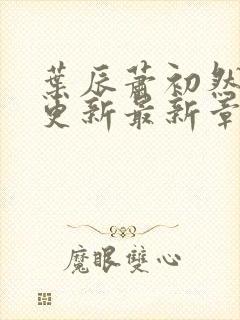 葉辰蕭初然
更新最新章
魔眼雙心